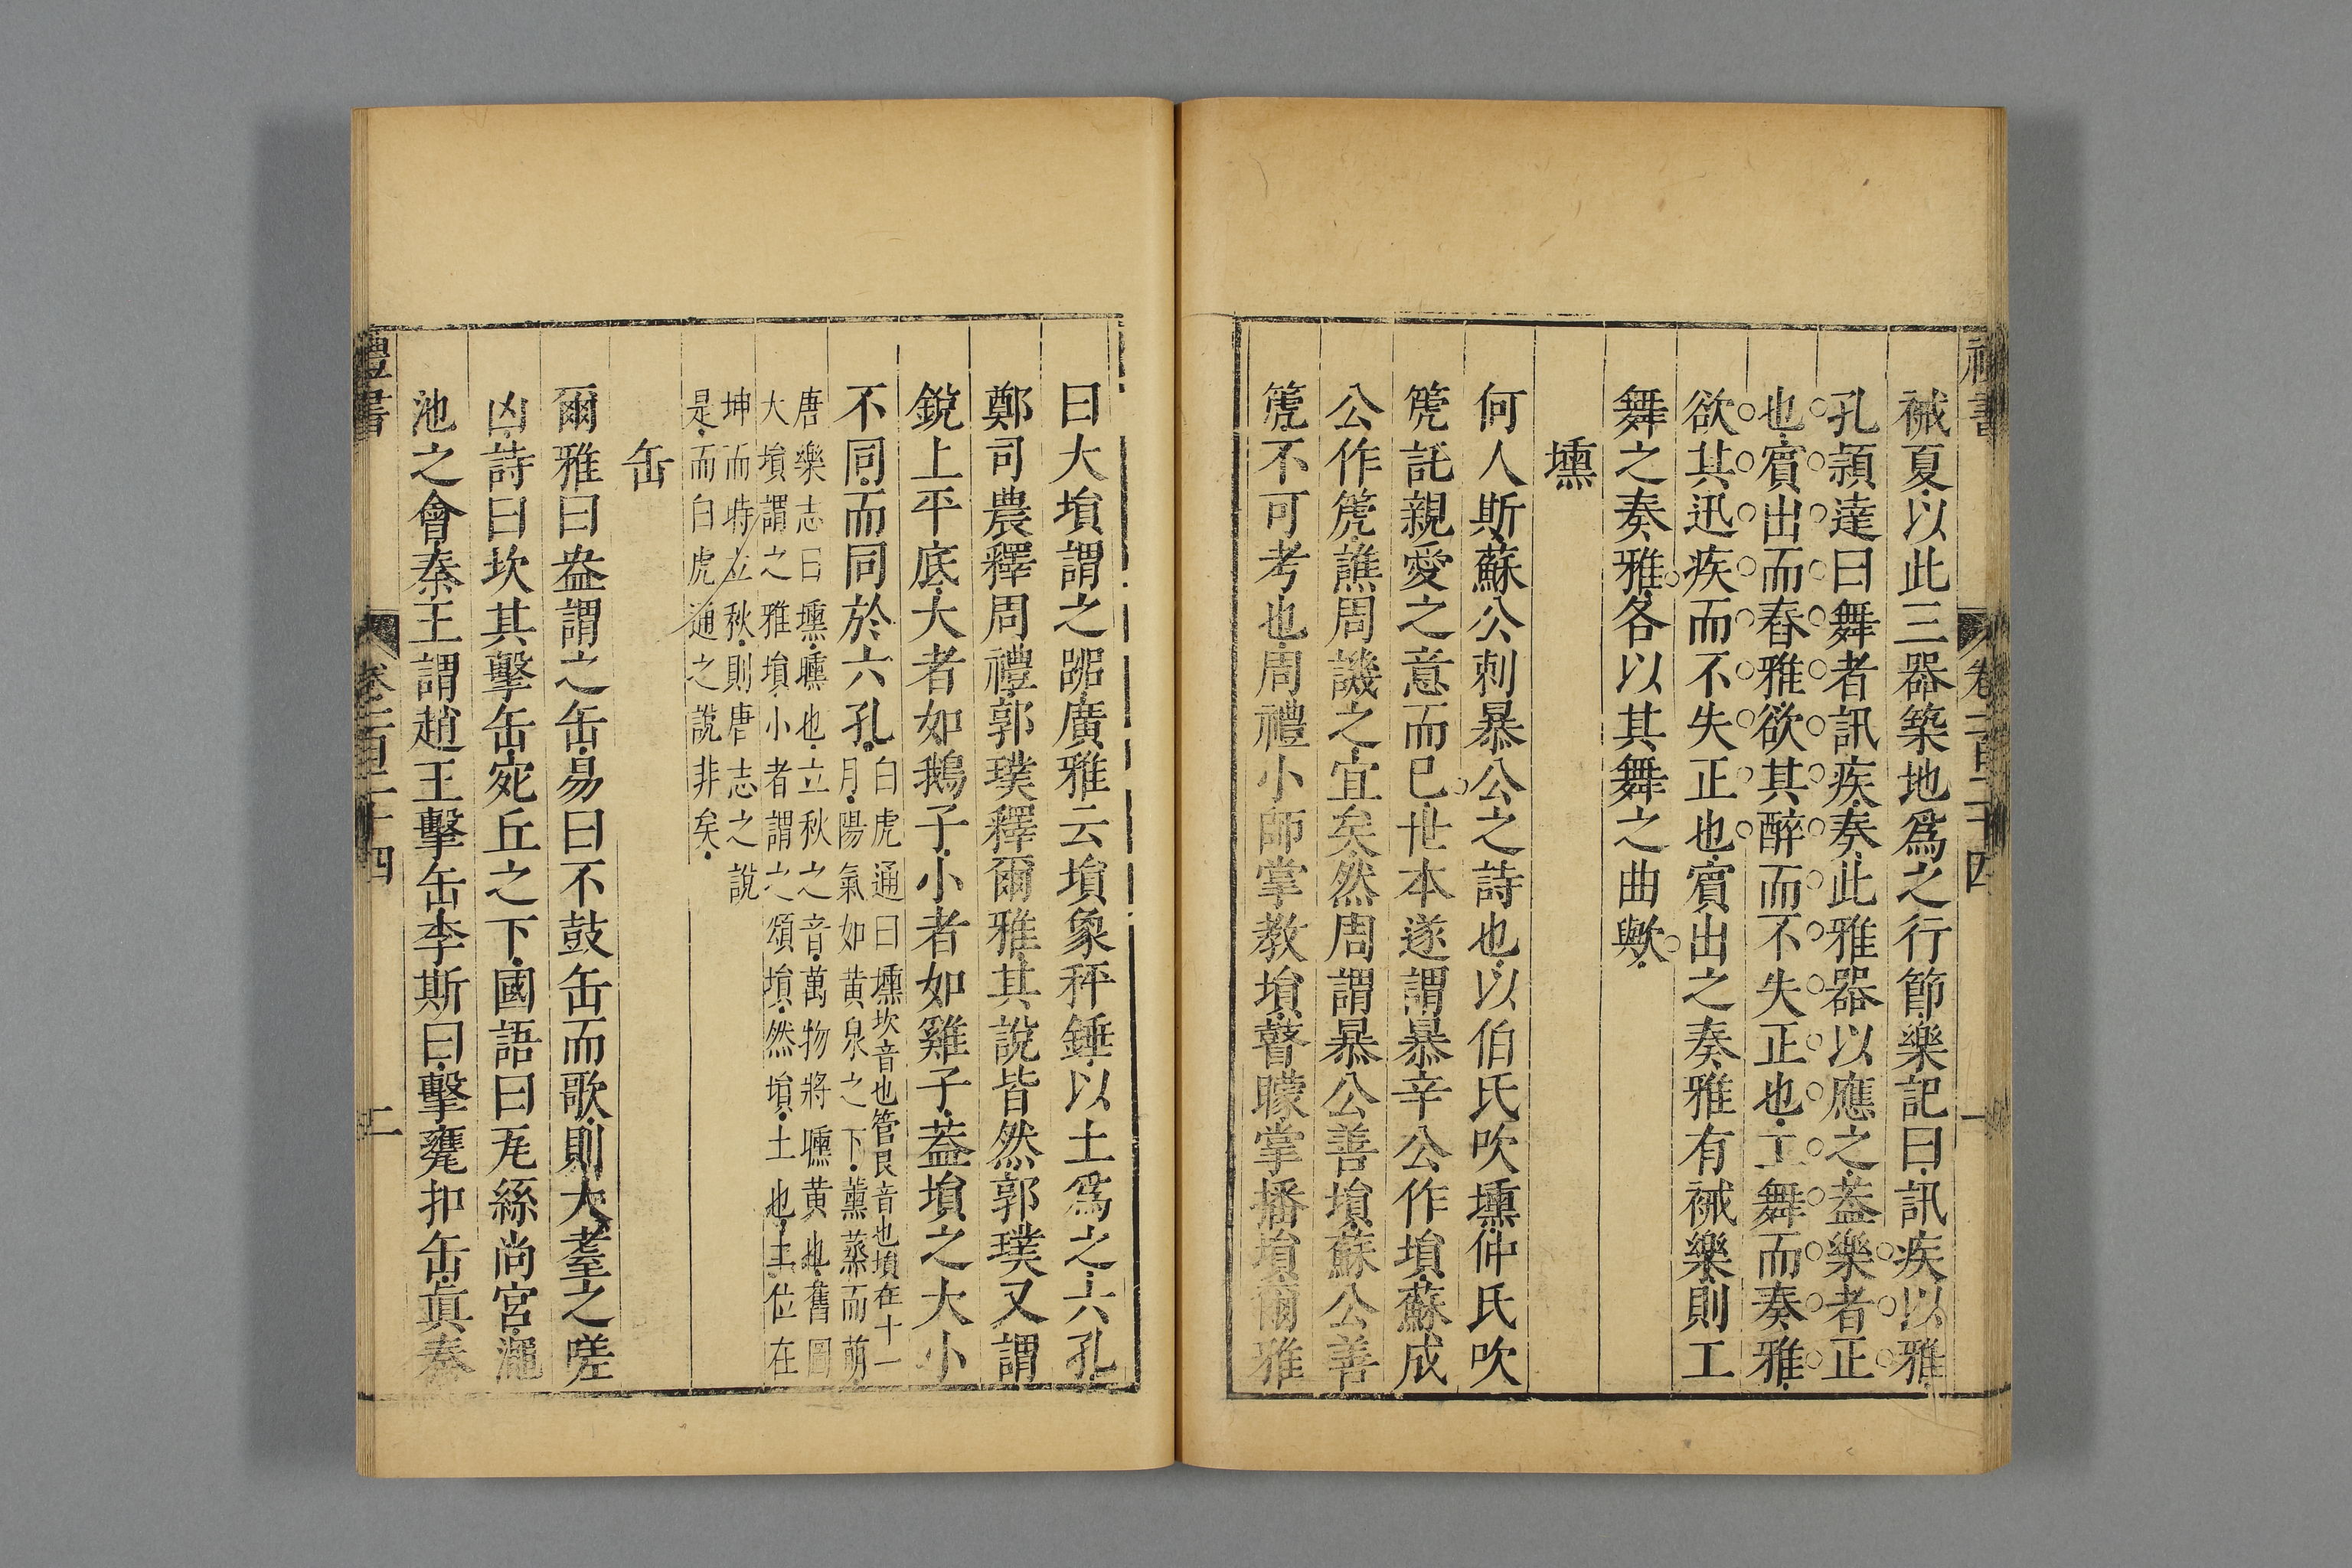 祴夏以此三器築地爲之行節樂記曰訊疾以雅
孔頴達曰舞者訊疾奏此雅器以應之葢樂者正
也賓出而舂雅欲其醉而不失正也工舞而奏雅
欲其迅疾而不失正也賓出之奏雅有祴樂則工
舞之奏雅各以其舞之曲歟
壎
何人斯蘇公刺暴公之詩也以伯氏吹壎仲氏吹
篪託親愛之意而已世本遂謂暴辛公作塤蘇成
公作篪譙周譏之宜矣然周謂暴公善塤蘇公善
篪不可考也周禮小師掌教塤瞽矇掌播塤爾雅
曰大塤謂之䟽廣雅云塤象秤錘以土爲之六孔
鄭司農釋周禮郭璞釋爾雅其說皆然郭璞又謂
銳上平底大者如鵝子小者如雞子葢塤之大小
不同而同於六孔
白虎通曰壎坎音也管艮音也塤在十一
月陽氣如黄泉之下薰蒸而萌
唐樂志曰壎曛也立秋之音萬物將曛黄也舊圖
大塤謂之雅塤小者謂之頌塤然塤土也土位在
坤而時立秋則唐志之說
是而白虎通之說非矣
缶
爾雅曰盎謂之缶易曰不鼓缶而歌則大耋之嗟
凶詩曰坎其擊缶宛丘之下國語曰㼝絲尚宮澠
池之會秦王謂趙王擊缶李斯曰擊罋扣缶真秦
禮書
卷一百二十四
二